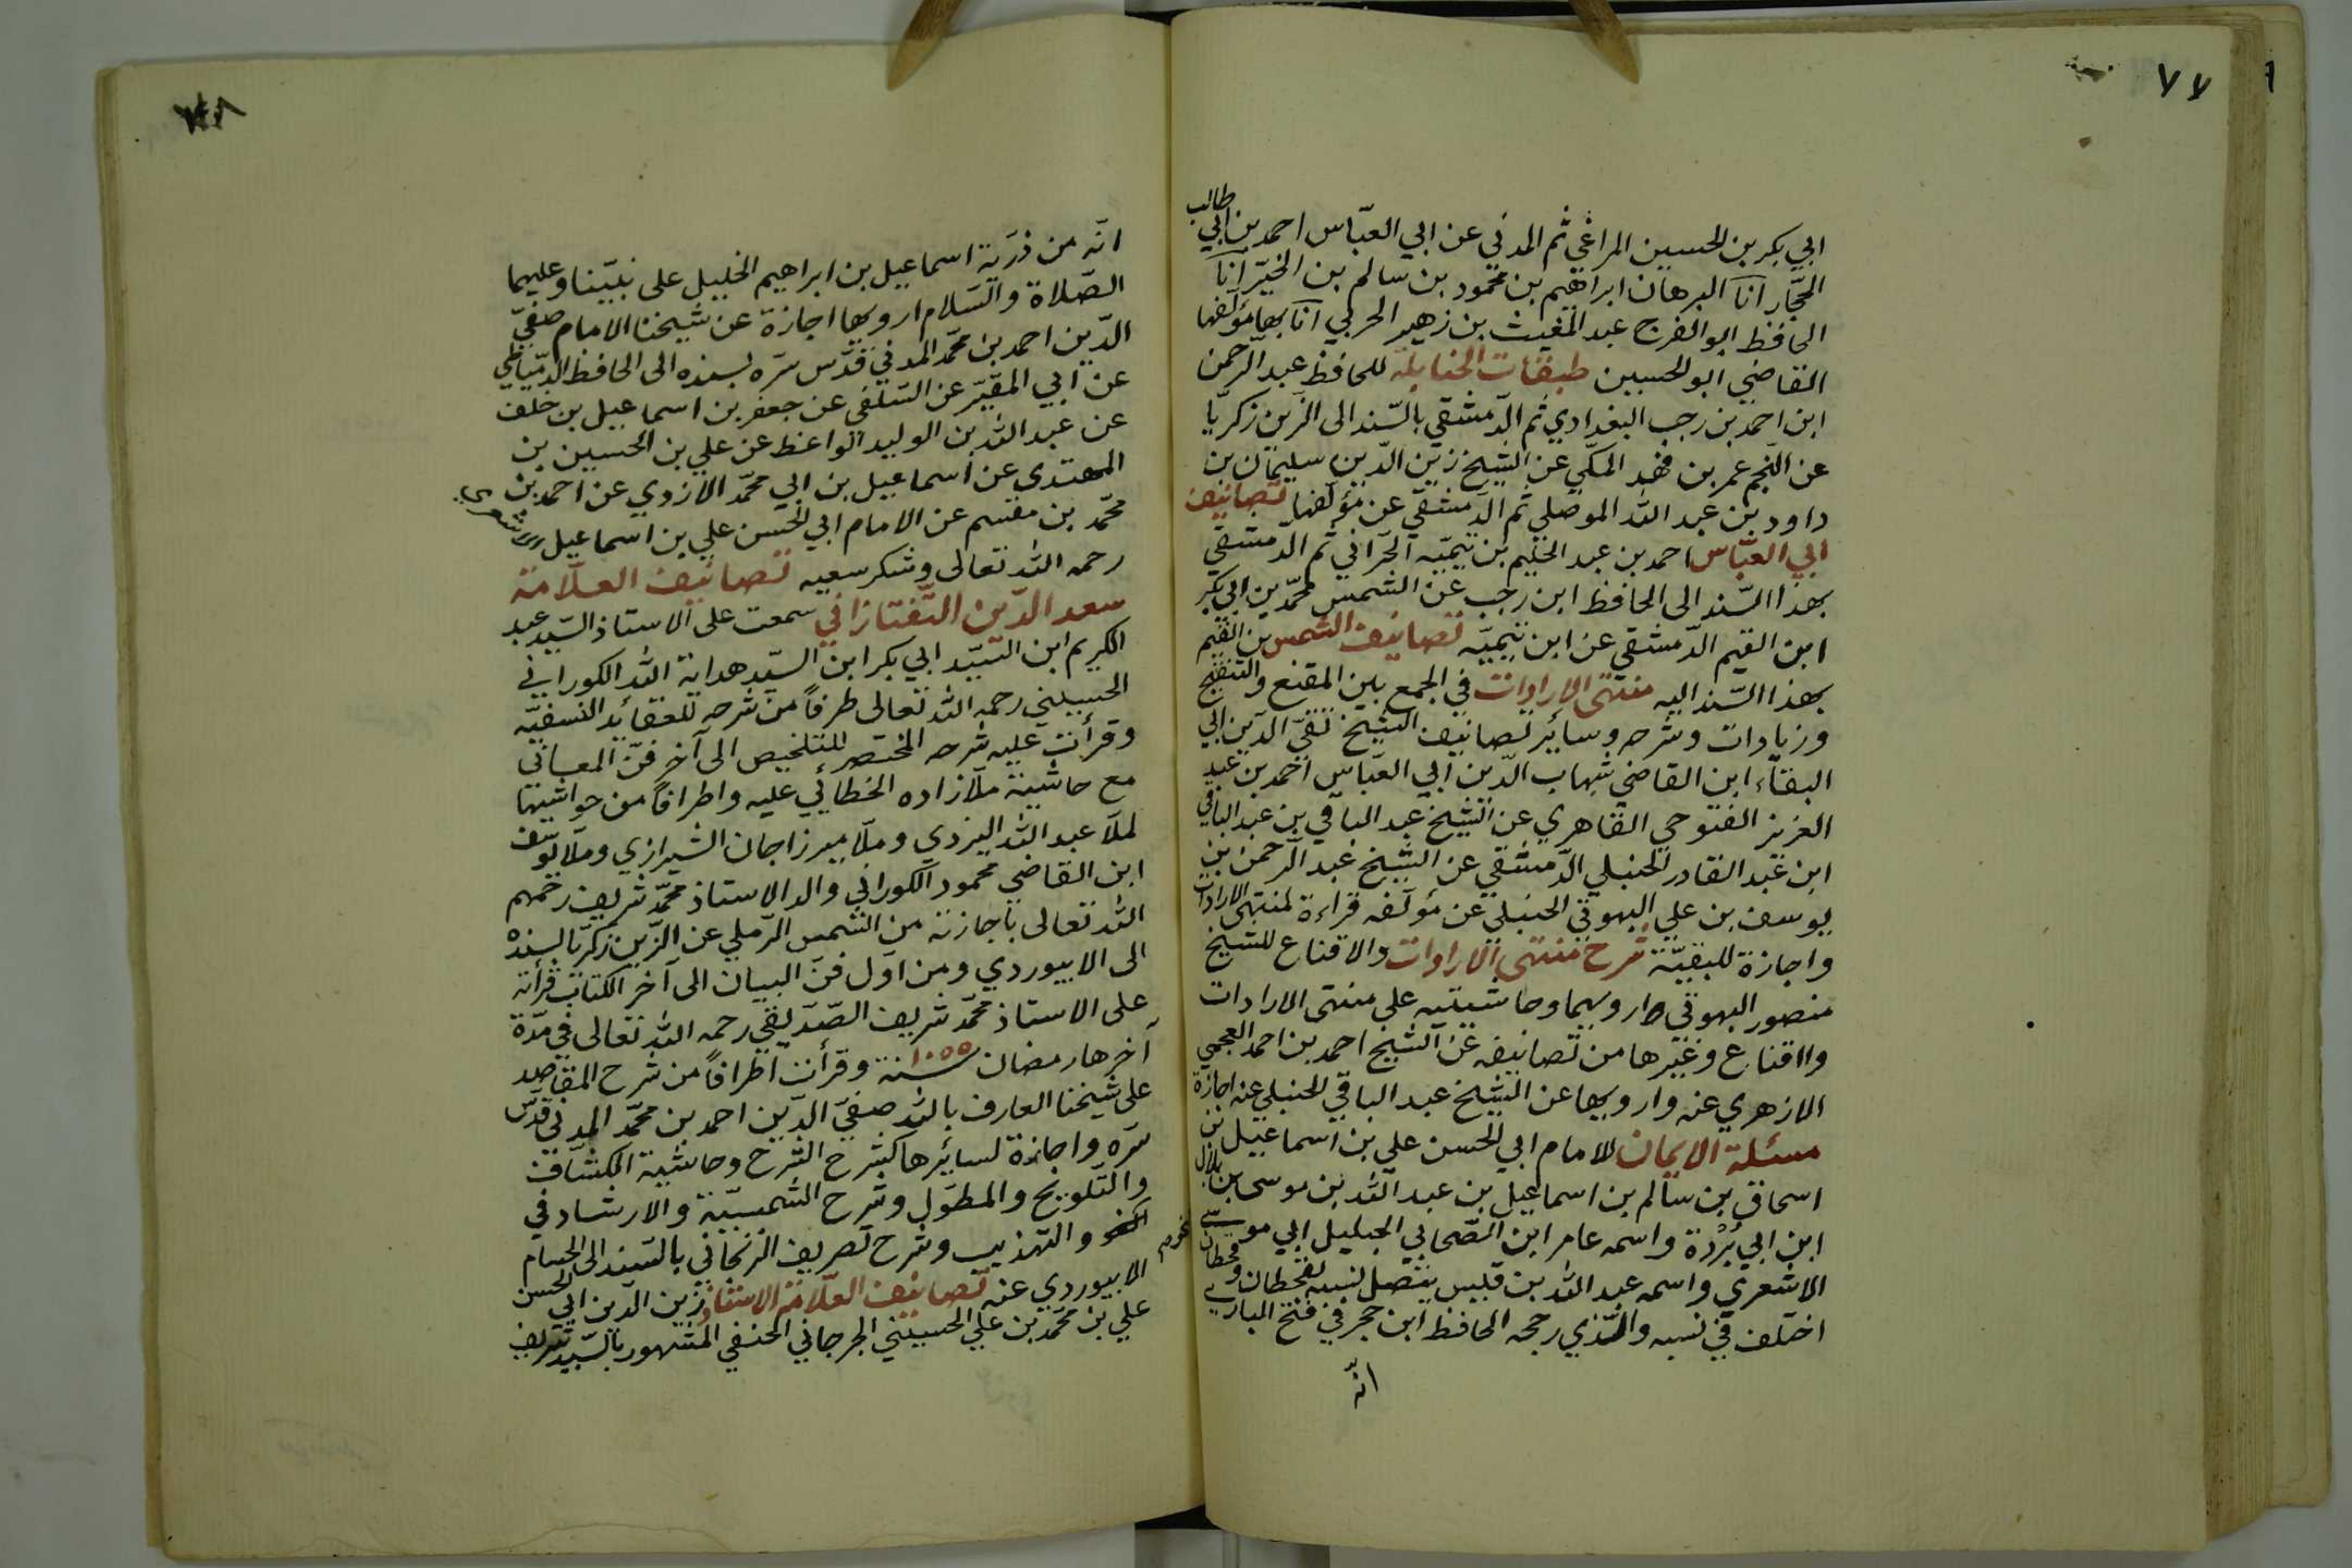 ٧٧
ابي بكر بن الحسين المراغي ثم المدني عن ابي العبّاس احمد بن ابي طالب
الحجّار انا البرهان ابراهيم بن محمود بن سالم بن الخيّر انا
الحافظ ابو الفرج عبد المغيث بن زهير الحربي انا بها مؤلفها
القاضي ابو الحسين طبقات الحنابلة للحافظ عبد الرّحمن
ابن احمد بن رجب البغدادي ثم الدّمشقي بالسّند الى الزين زكريّا
عن النّجم عمر بن فهد المكّي عن الشيخ زين الدّين سليمان بن
داود بن عبد الله الموصلي ثم الدّمشقي عن مؤلفها تصانيف
ابي العبّاس احمد بن عبد الحليم بن تيميّه الحرّاني ثم الدمشقي
بهذا السّند الى الحافظ ابن رجب عن الشمس محمّد بن ابي بكر
ابن القيم الدّمشقي عن ابن تيميّه تصانيف الشمس بن القيّم
بهذا السّند اليه منتهى الارادات في الجمع بين المقنع والتنقيح
وزيادات وشرحه وسائر تصانيف الشيخ تقيّ الدّين ابي
البقآء ابن القاضي شهاب الدّين ابي العبّاس احمد بن عبد
العزيز الفتوحي القاهري عن الشيخ عبد الباقي بن عبد الباقي
ابن عبد القادر الحنبلي الدّمشقي عن الشيخ عبد الرّحمن بن
يوسف بن علي البهوتي الحنبلي عن مؤلفه قراءة لمنتهى الارادات
واجازة للبقيّة شرح منتهى الارادات والاقناع للشيخ
منصور البهوتي ارويهما وحاشيتيه على منتهى الارادات
والاقناع وغيرها من تصانيفه عن الشيخ احمد بن احمد العجمي
الازهري عنه وارويها عن الشيخ عبد الباقي الحنبلي عنه اجازة
مسئلة الايمان للامام ابي الحسن علي بن اسماعيل بن
اسحاق بن سالم بن اسماعيل بن عبد الله بن موسى بن بلال
ابن ابي بُرْدة واسمه عامر ابن الصّحابي الجليل ابي موسى
الاشعري واسمه عبد الله بن قيس يتّصل نسبه لقحطان وقحطان
اختلف في نسبه والّذي رجحه الحافظ ابن حجر في فتح الباري
انّه
٧٨
انّه من ذرّية اسماعيل بن ابراهيم الخليل على نبيّنا وعليهما
الصّلاة والسّلام ارويها اجازة عن شيخنا الامام صفيّ
الدّين احمد بن محمّد المدني قدّس سرّه بسنده الى الحافظ الدمياطي
عن ابي المقيّر عن السّلفي عن جعفر بن اسماعيل بن خلف
عن عبد الله بن الوليد الواعظ عن علي بن الحسين بن
المهتدى عن اسماعيل بن ابي محمّد الازدي عن احمد بن
محمّد بن مقسم عن الامام ابي الحسن علي بن اسماعيل الاشعري
رحمه الله تعالى وشكر سعيه تصانيف العلّامة
سعد الدّين التّفتازاني سمعت على الاستاذ السّيد عبد
الكريم ابن السّيّد ابي بكر ابن السيّد هداية الله الكوراني
الحسيني رحمه الله تعالى طرفاً من شرحه للعقائد النسفيّه
وقرأت عليه شرحه المختصر للتلخيص الى آخر فنّ المعاني
مع حاشية ملّازاده الخطائي عليه واطرافاً من حواشيها
لملّا عبد الله اليزدي وملّا ميرزاجان الشيرازي وملّا يوسف
ابن القاضي محمود الكوراني والد الاستاذ محمّد شريف رحمهم
الله تعالى باجازته من الشمس الرّملي عن الزّين زكريّا بسنده
الى الابيوردي ومن اوّل فنّ البيان الى آخر الكتاب قرأته
على الاستاذ محمّد شريف الصّدّيقي رحمه الله تعالى في مدّة
آخرها رمضان سنة ١٠٥٥ وقرأت اطرافاً من شرح المقاصد
على شيخنا العارف بالله صفيّ الدّين احمد بن محمّد المدني قدّس
سرّه واجازة لسائرها كشرح الشرح وحاشية الكشّاف
والتّلويح والمطوّل وشرح الشمسيّة والارشاد في
النحو والتهذيب وشرح تصريف الزنجاني بالسّند الى الحسام
الابيوردي عنه تصانيف العلّامة الاستاذ زين الدّين ابي الحسن
علي بن محمّد بن علي الحسيني الجرجاني الحنفي المشهور بالسّيد شريف